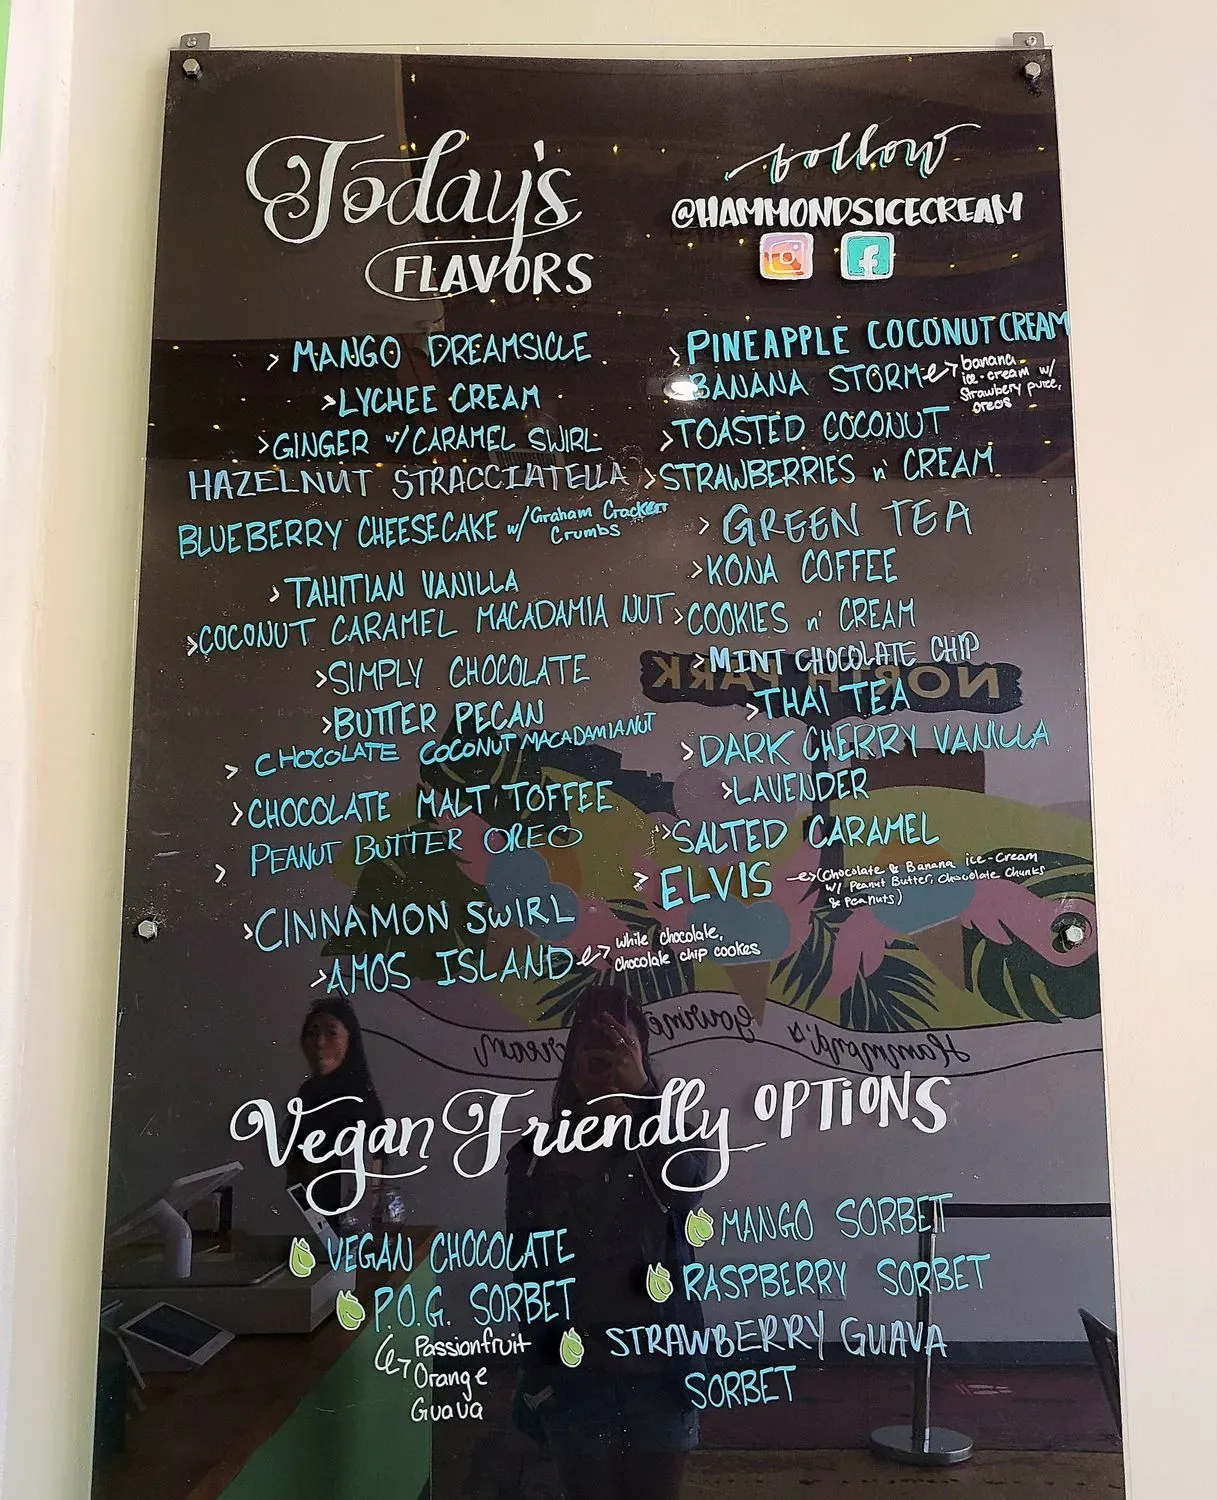 Today's
FLAVORS
follow
@HAMMONDSICECREAM
> MANGO DREAMSICLE
> LYCHEE CREAM
> GINGER w/ CARAMEL SWIRL
HAZELNUT STRACCIATELLA
BLUEBERRY CHEESECAKE w/ Graham Cracker
Crumbs
> TAHITIAN VANILLA
> COCONUT CARAMEL MACADAMIA NUT
> SIMPLY CHOCOLATE
> BUTTER PECAN
> CHOCOLATE COCONUT MACADAMIA NUT
> CHOCOLATE MALT TOFFEE
> PEANUT BUTTER OREO
> CINNAMON SWIRL
> AMOS ISLAND
while chocolate,
chocolate chip cookes
> PINEAPPLE COCONUT CREAM
BANANA STORM
banana
ice-cream w/
Strawbery puree,
oreos
> TOASTED COCONUT
> STRAWBERRIES n' CREAM
> GREEN TEA
> KONA COFFEE
> COOKIES n' CREAM
> MINT CHOCOLATE CHIP
NORTH PARK
> THAI TEA
> DARK CHERRY VANILLA
> LAVENDER
> SALTED CARAMEL
> ELVIS
(Chocolate & Banana ice-Cream
w/ Peanut Butter, Chocolate Chunks
& Peanuts)
Hammond's Gourmet
Vegan Friendly OPTIONS
VEGAN CHOCOLATE
P.O.G. SORBET
Passionfruit
Orange
Guava
MANGO SORBET
RASPBERRY SORBET
STRAWBERRY GUAVA
SORBET